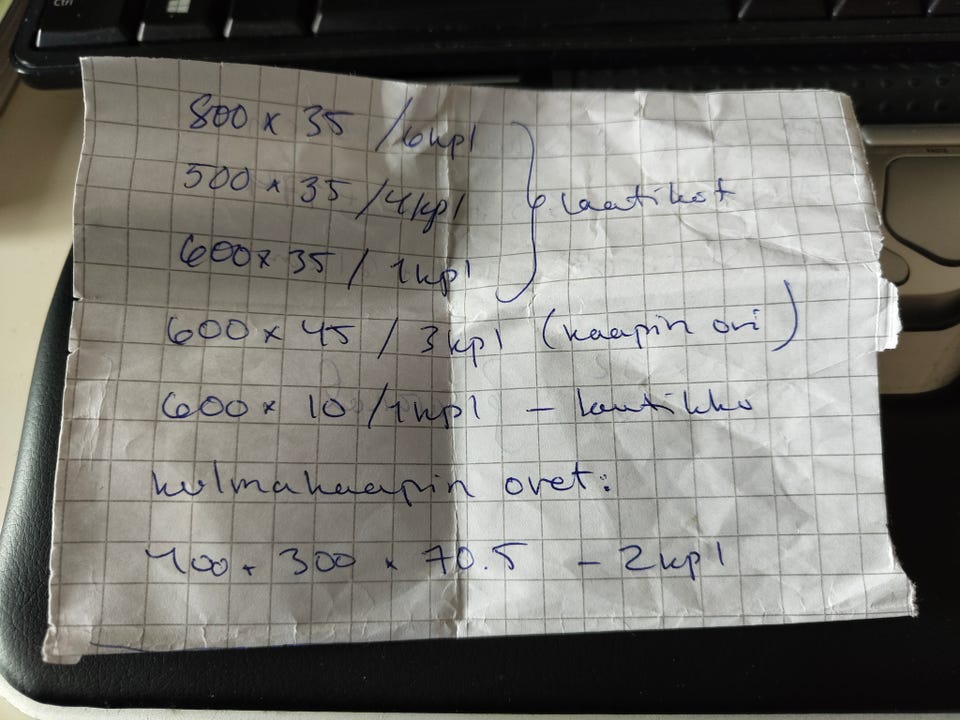 800 x 35 / 6 kpl
500 x 35 / 4 kpl
600 x 35 / 1 kpl
laatikot
600 x 45 / 3 kpl (kaapin ovi)
600 x 10 / 1 kpl – laatikko
kulmakaapin ovet:
400 + 300 x 70.5 – 2 kpl
Ctrl